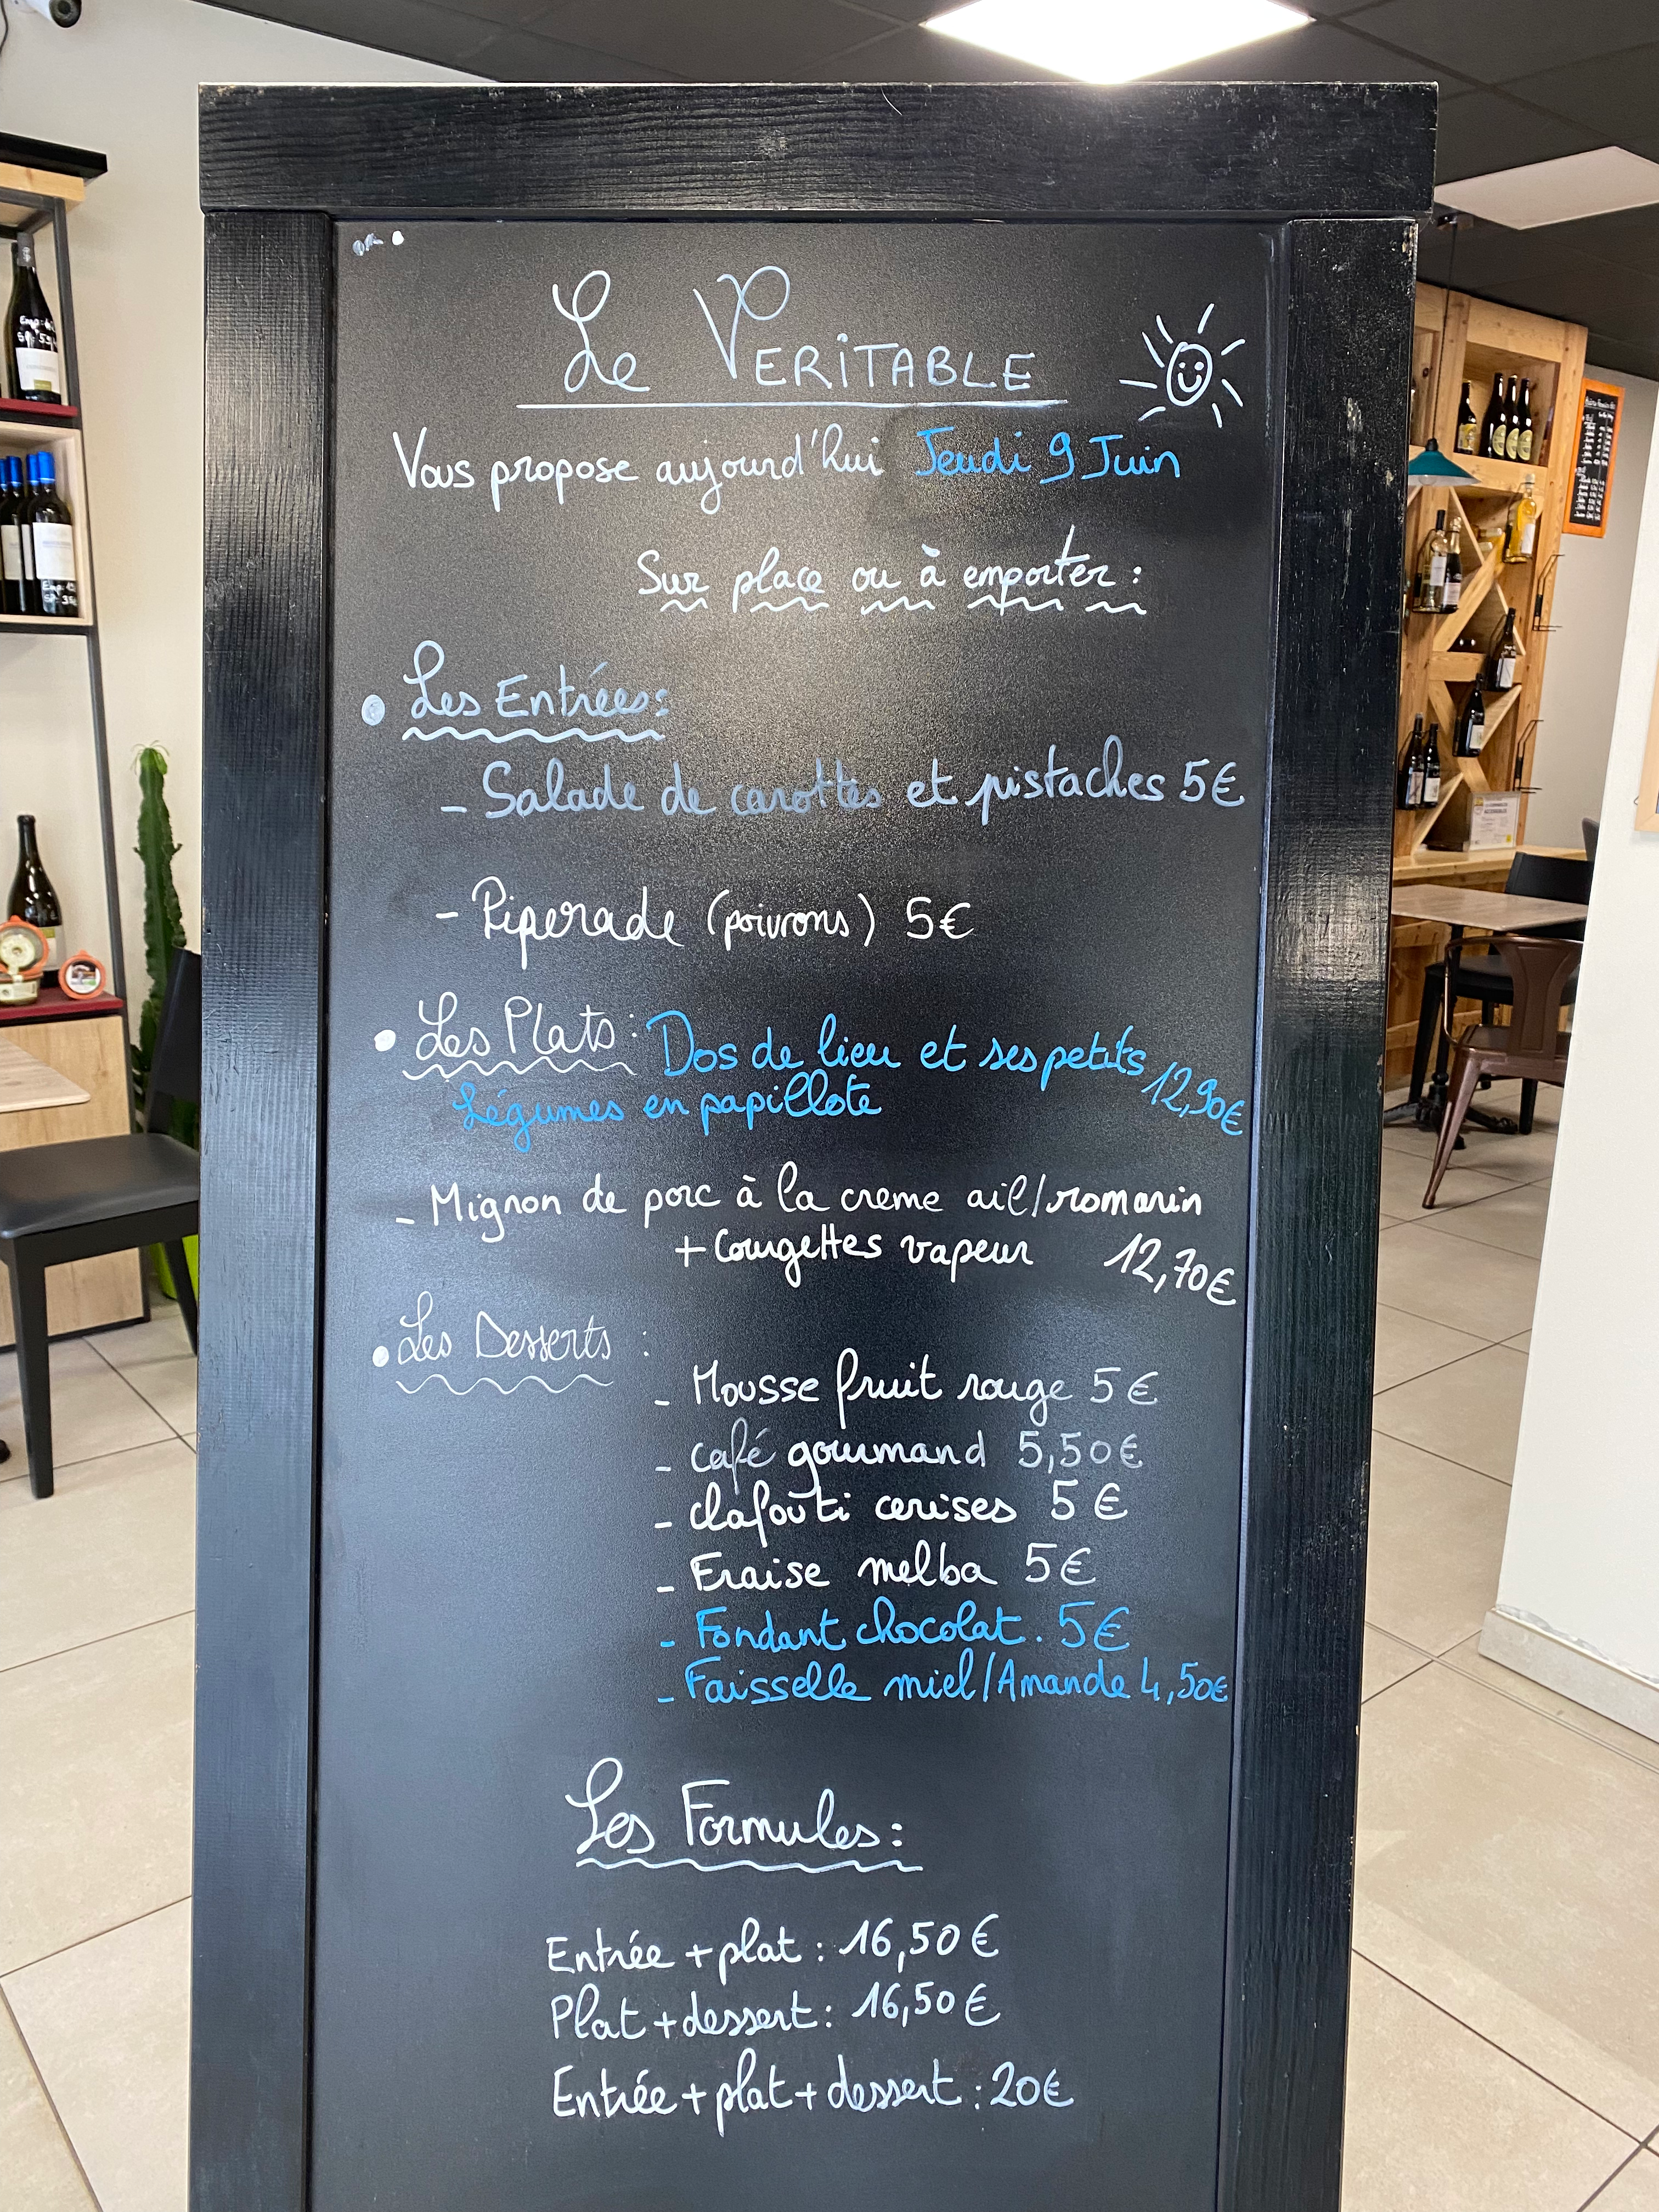 Le VERiTABLE
Vous propose aujourd'hui Jeudi 9 Juin
Sur place ou à emporter :
Les Entrées :
- Salade de carottes et pistaches 5€
- Piperade (poivrons) 5€
Les Plats : Dos de lieu et ses petits
légumes en papillote 12,90€
- Mignon de porc à la creme ail/romarin
+ Courgettes vapeur 12,70€
Les Desserts :
- Mousse fruit rouge 5€
- café gourmand 5,50€
- clafouti cerises 5€
- Fraise melba 5€
- Fondant chocolat. 5€
- Faisselle miel/Amande 4,50€
Les Formules :
Entrée + plat : 16,50€
Plat + dessert : 16,50€
Entrée + plat + dessert : 20€